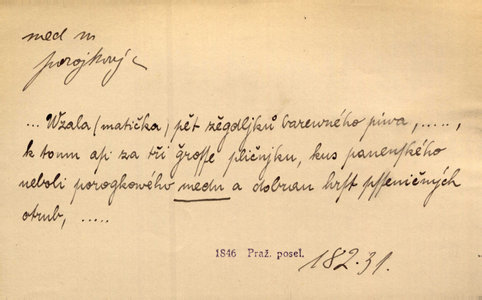 med m
porojkový
... Wzala (matička) pět zěgdljků barewného piwa, ....,
k tomu asi za tři grosse pličnjku, kus panenského
neboli porogkowého medu a dobrau hrst psseničných
otrub, .....
1846 Praž. posel.
182.31.